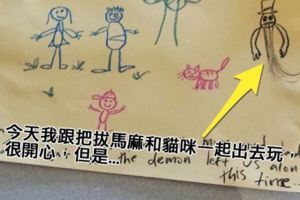 今天我跟把拔馬麻和貓咪一起出去玩，
很開心，但是...
the demon left us alone
this time.